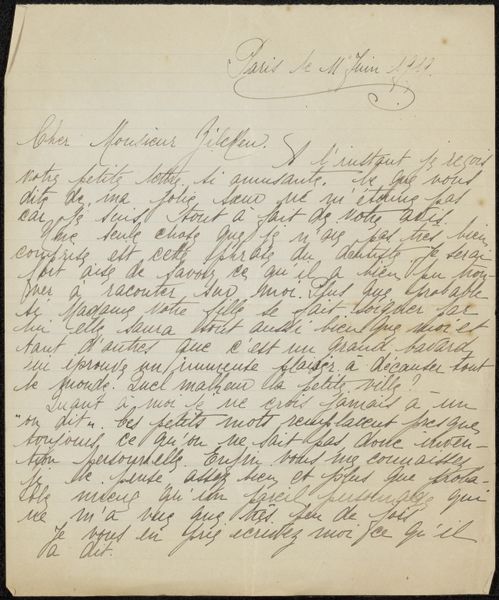 Paris le 11 Juin
Cher Monsieur Zilcken.
A l'instant je reçois
votre petite lettre si amusante. Ce que vous
dite de ma jolie sœur ne m'étonne pas
car je suis tout à fait de votre avis.
Une seule chose que je n'aie pas très bien
comprise est cette phrase du dentiste. Je serai
fort aise de savoir ce qu'il a bien pu trou-
ver à raconter sur moi. Plus que probable
si Madame votre fille se fait soigner par
lui elle saura tout aussi bien que moi et
tant d'autres que c'est un grand bavard
qui éprouve un immense plaisir à décauser tout
le monde. Quel malheur la petite ville?
Quant à moi je ne crois jamais à un
"on dit". Ces petits mots remplacent presque
toujours ce qu'on ne sait pas donc inven-
tion personnelle. Enfin vous me connaissez
je le pense assez bien et plus que proba-
ble mieux qu'un pareil personnage qui
ne m'a vue que très peu de fois
Je vous en prie écrivez moi ce qu'il
a dit.